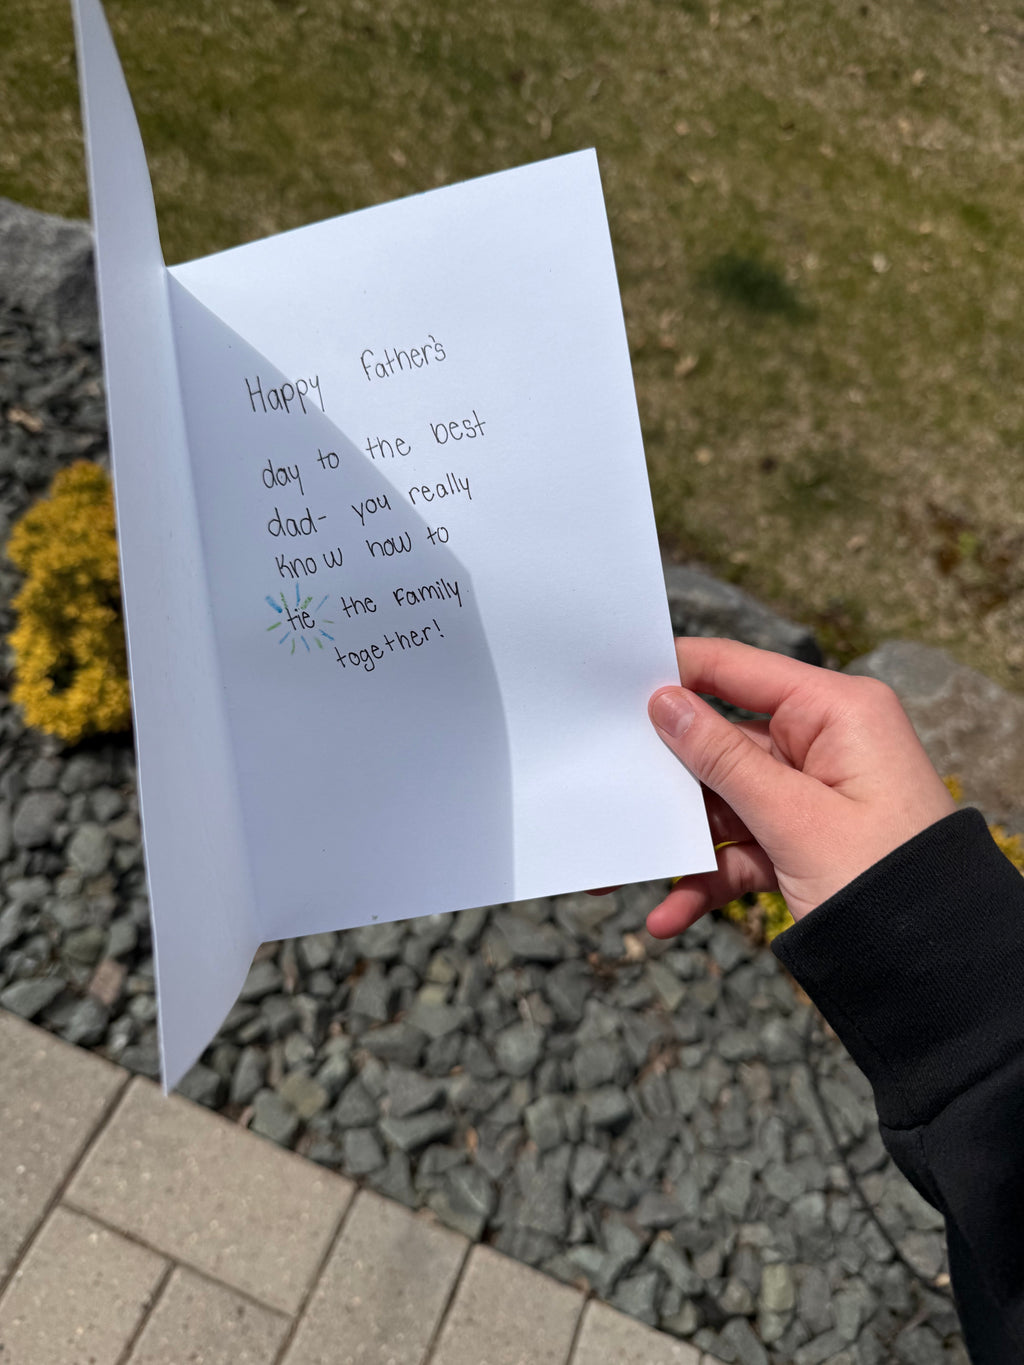 Happy Father's
day to the best
dad- you really
know how to
tie the family
together!